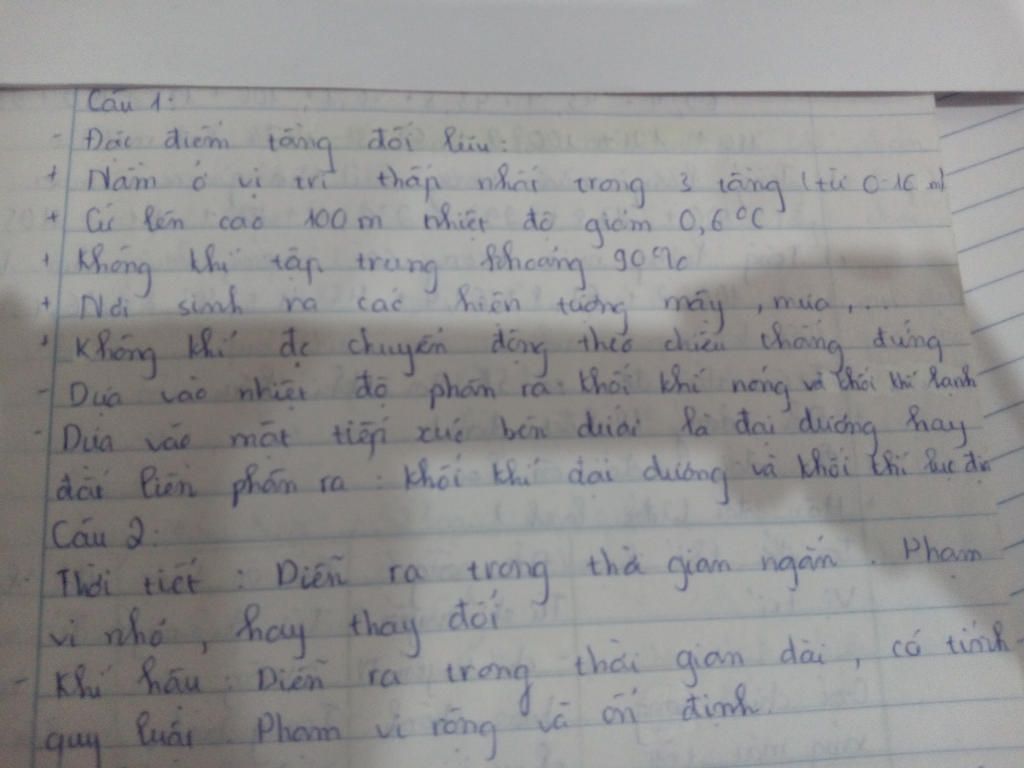 Câu 1:
- Đặc điểm tầng đối lưu:
+ Nằm ở vị trí thấp nhất trong 3 tầng (từ 0-16 m)
+ Cứ lên cao 100 m nhiệt độ giảm 0,6°C
+ Không khí tập trung khoảng 90%
+ Nơi sinh ra các hiện tượng mây, mưa,...
+ Không khí đc chuyển động theo chiều thẳng đứng
- Dựa vào nhiệt độ phân ra: khối khí nóng và khối khí lạnh
- Dựa vào mặt tiếp xúc bên dưới là đại dương hay
đất liền phân ra: khối khí đại dương và khối khí lục địa
Câu 2:
- Thời tiết: Diễn ra trong thời gian ngắn. Phạm
vi nhỏ, hay thay đổi
- Khí hậu: Diễn ra trong thời gian dài, có tính
quy luật. Phạm vi rộng và ổn định.